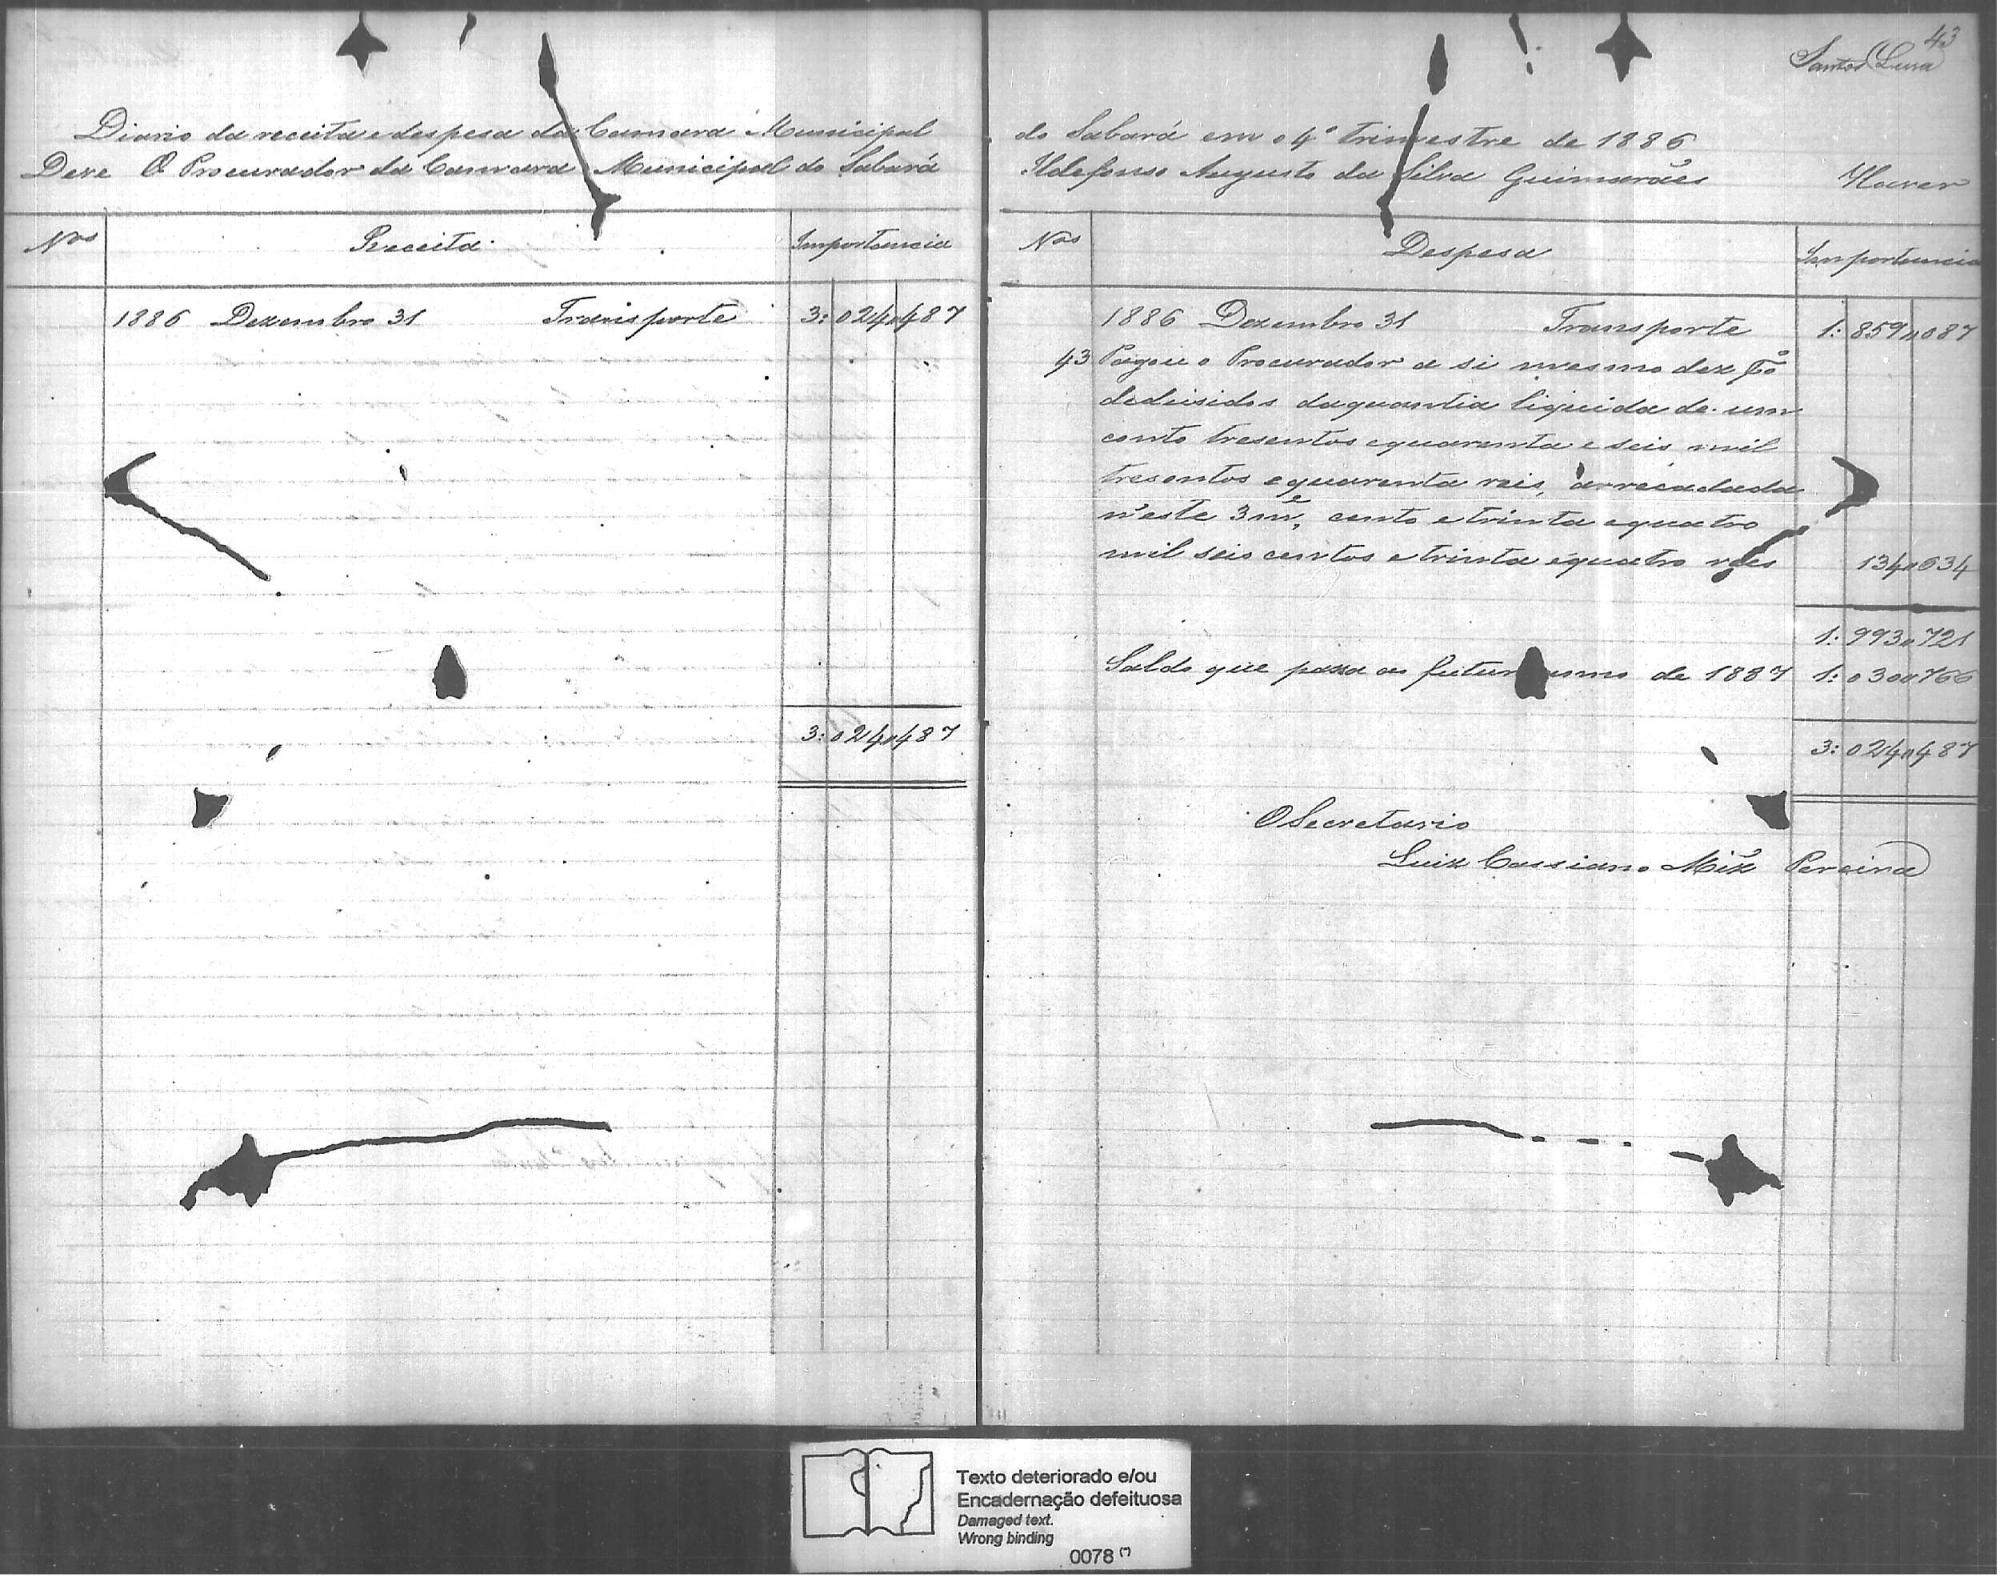 43
Santos Lima
Diario da receita e despesa da Camara Municipal
Deve O Procurador da Camara Municipal do Sabará
Nos Receita Importancia
1886 Dezembro 31 Transporte 3:024„487
3:024„487
do Sabará em o 4º trimestre de 1886
Ildefonso Augusto da Silva Guimarães Haver
Nos Despesa Importancia
1886 Dezembro 31 Transporte 1:859„087
43 Pagou o Procurador a si mesmo dez %
dedusidos da quantia liquida de um
conto tresentos e quarenta e seis mil
tresentos e quarenta reis, arrecadada
n'este 3m.e, cento e trinta e quatro
mil seis centos e trinta e quatro reis 134„634
1:993„721
Saldo que passa ao futuro anno de 1887 1:030„766
3:024„487
O Secretario
Luiz Cassiano Miz Pereira
Texto deteriorado e/ou
Encadernação defeituosa
Damaged text.
Wrong binding
0078 (*)